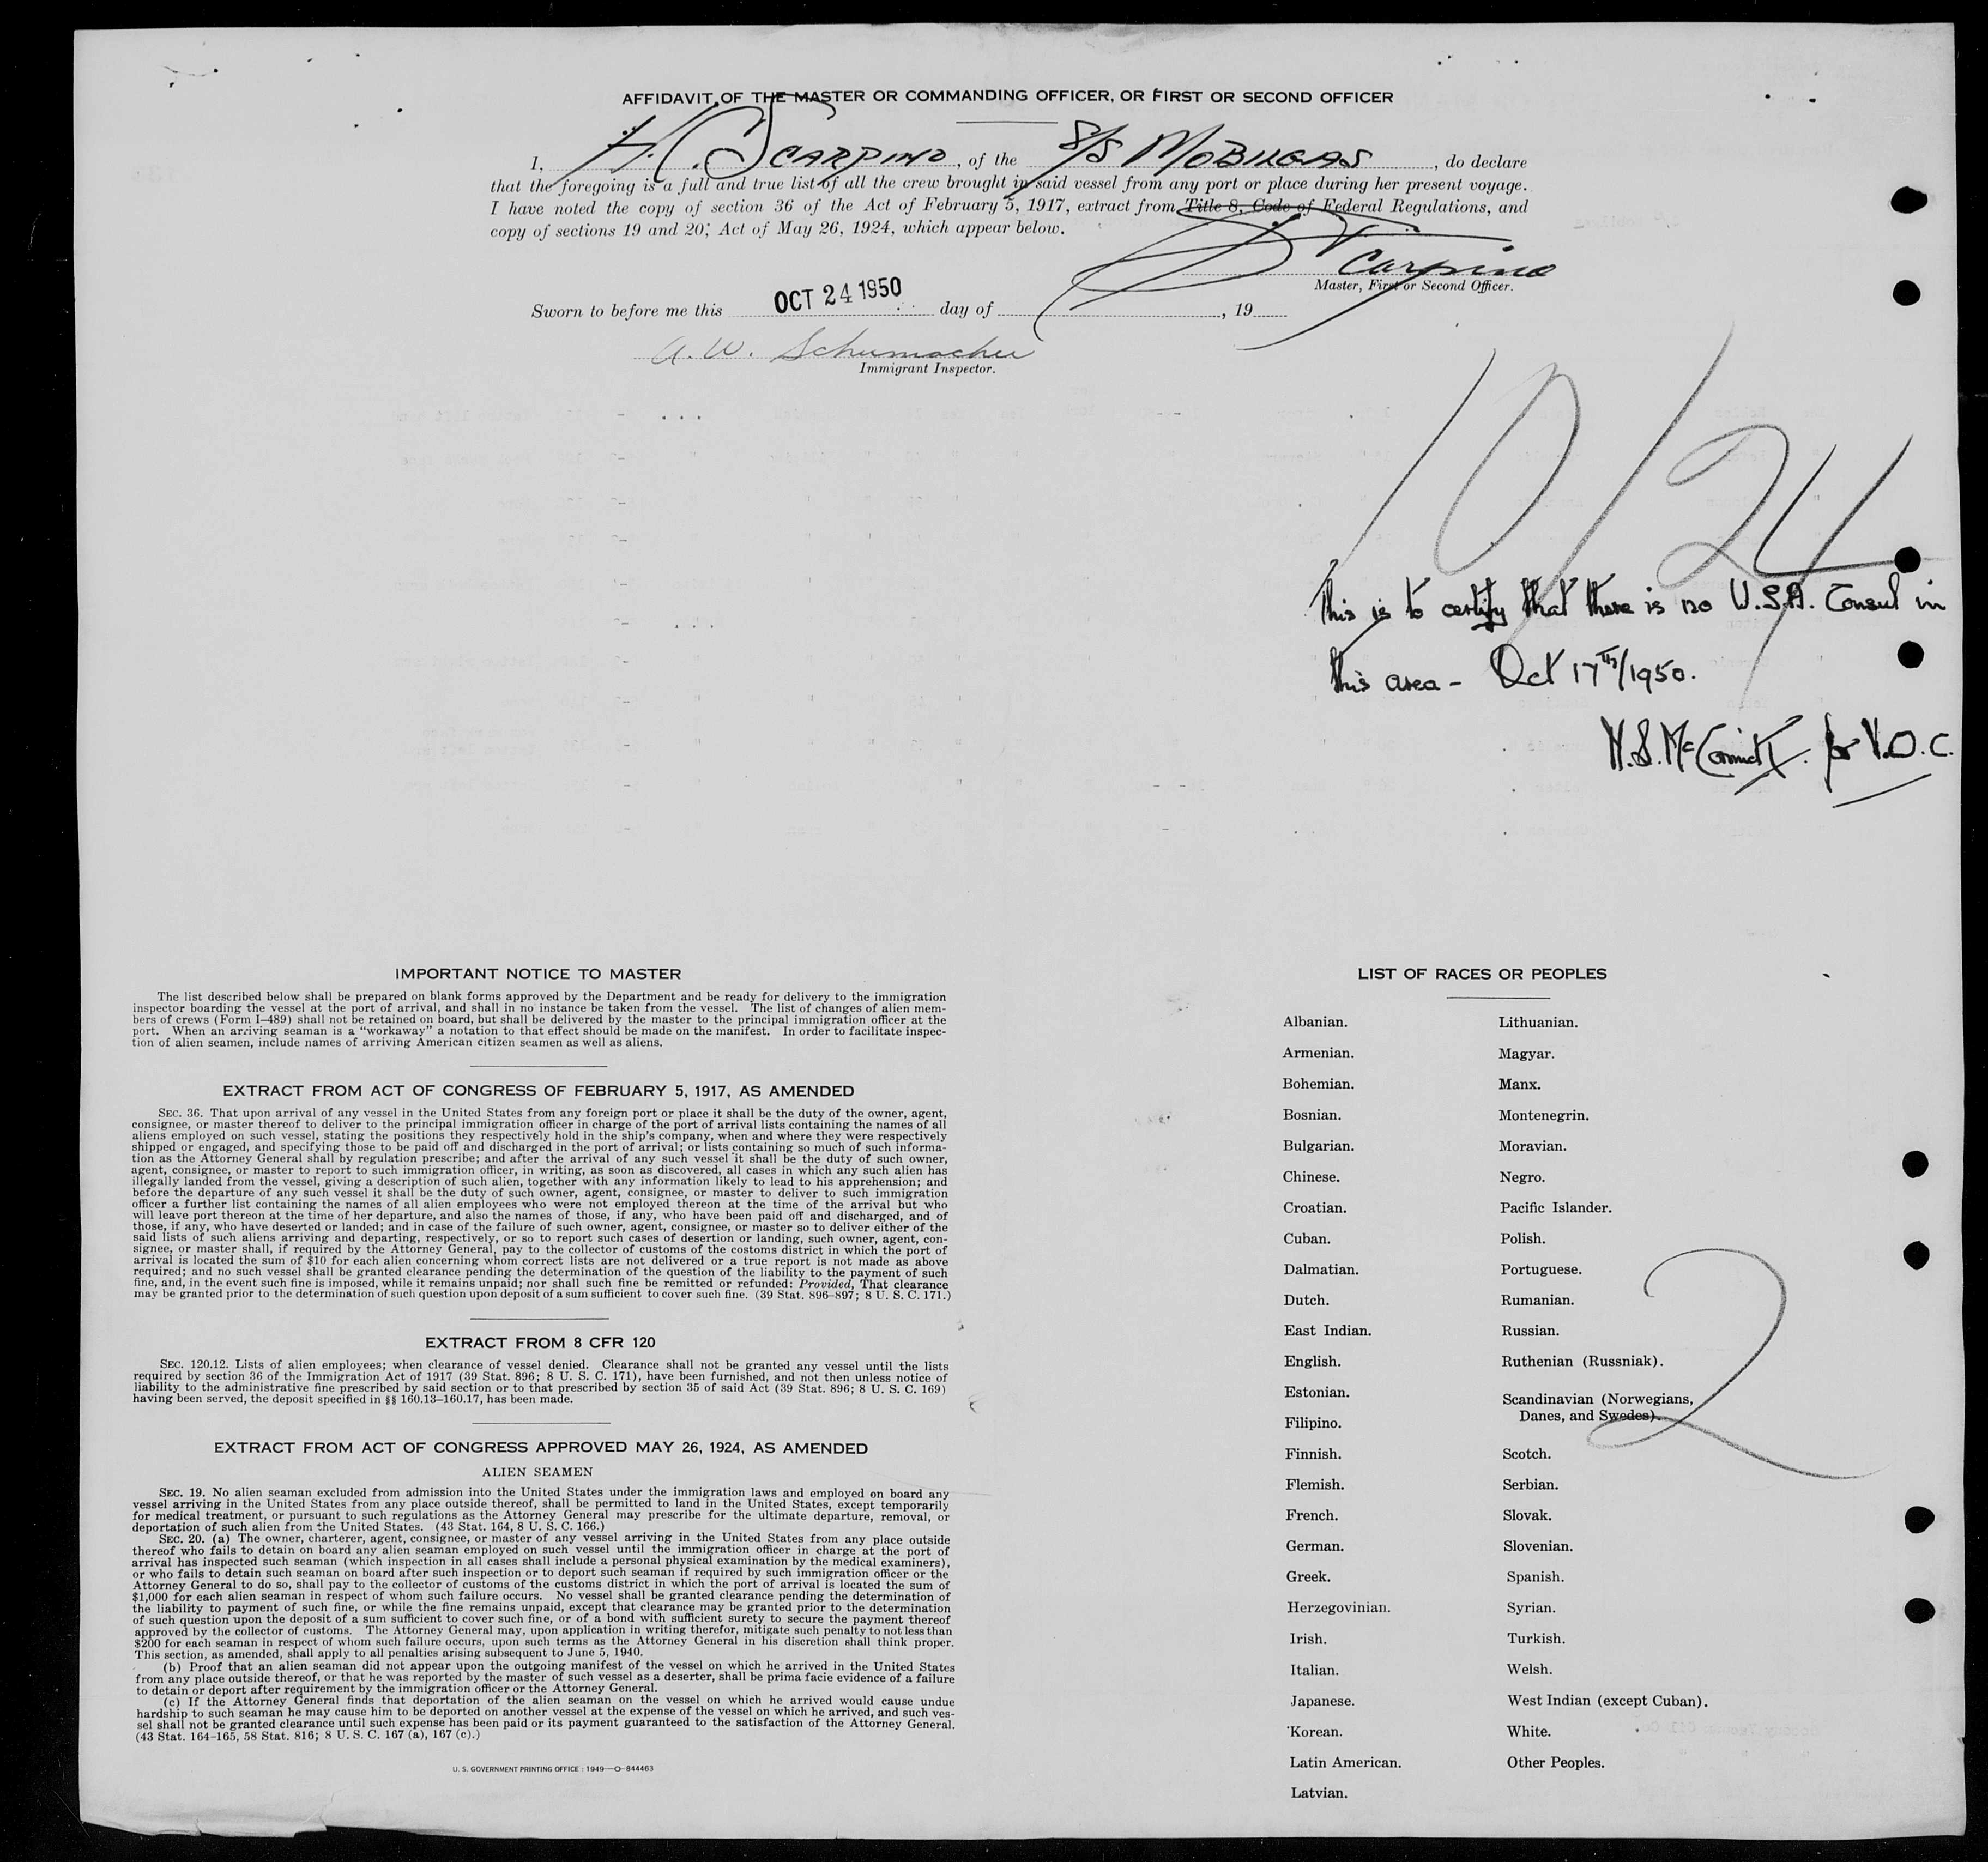 AFFIDAVIT OF THE MASTER OR COMMANDING OFFICER, OR FIRST OR SECOND OFFICER
I, H. C. SCARPINO, of the S/S MOBILGAS, do declare
that the foregoing is a full and true list of all the crew brought in said vessel from any port or place during her present voyage.
I have noted the copy of section 36 of the Act of February 5, 1917, extract from Title 8, Code of Federal Regulations, and
copy of sections 19 and 20, Act of May 26, 1924, which appear below.
Scarpino
Master, First or Second Officer.
Sworn to before me this OCT 24 1950 day of , 19
A. W. Schumacher
Immigrant Inspector.
10/24
This is to certify that there is no U.S.A. Consul in
this area - Oct 17th/1950.
N.S. McCormick. for V.O.C.
IMPORTANT NOTICE TO MASTER
The list described below shall be prepared on blank forms approved by the Department and be ready for delivery to the immigration
inspector boarding the vessel at the port of arrival, and shall in no instance be taken from the vessel. The list of changes of alien mem-
bers of crews (Form I–489) shall not be retained on board, but shall be delivered by the master to the principal immigration officer at the
port. When an arriving seaman is a “workaway” a notation to that effect should be made on the manifest. In order to facilitate inspec-
tion of alien seamen, include names of arriving American citizen seamen as well as aliens.
EXTRACT FROM ACT OF CONGRESS OF FEBRUARY 5, 1917, AS AMENDED
SEC. 36. That upon arrival of any vessel in the United States from any foreign port or place it shall be the duty of the owner, agent,
consignee, or master thereof to deliver to the principal immigration officer in charge of the port of arrival lists containing the names of all
aliens employed on such vessel, stating the positions they respectively hold in the ship's company, when and where they were respectively
shipped or engaged, and specifying those to be paid off and discharged in the port of arrival; or lists containing so much of such informa-
tion as the Attorney General shall by regulation prescribe; and after the arrival of any such vessel it shall be the duty of such owner,
agent, consignee, or master to report to such immigration officer, in writing, as soon as discovered, all cases in which any such alien has
illegally landed from the vessel, giving a description of such alien, together with any information likely to lead to his apprehension; and
before the departure of any such vessel it shall be the duty of such owner, agent, consignee, or master to deliver to such immigration
officer a further list containing the names of all alien employees who were not employed thereon at the time of the arrival but who
will leave port thereon at the time of her departure, and also the names of those, if any, who have been paid off and discharged, and of
those, if any, who have deserted or landed; and in case of the failure of such owner, agent, consignee, or master so to deliver either of the
said lists of such aliens arriving and departing, respectively, or so to report such cases of desertion or landing, such owner, agent, con-
signee, or master shall, if required by the Attorney General, pay to the collector of customs of the costoms district in which the port of
arrival is located the sum of $10 for each alien concerning whom correct lists are not delivered or a true report is not made as above
required; and no such vessel shall be granted clearance pending the determination of the question of the liability to the payment of such
fine, and, in the event such fine is imposed, while it remains unpaid; nor shall such fine be remitted or refunded: Provided, That clearance
may be granted prior to the determination of such question upon deposit of a sum sufficient to cover such fine. (39 Stat. 896–897; 8 U. S. C. 171.)
EXTRACT FROM 8 CFR 120
SEC. 120.12. Lists of alien employees; when clearance of vessel denied. Clearance shall not be granted any vessel until the lists
required by section 36 of the Immigration Act of 1917 (39 Stat. 896; 8 U. S. C. 171), have been furnished, and not then unless notice of
liability to the administrative fine prescribed by said section or to that prescribed by section 35 of said Act (39 Stat. 896; 8 U. S. C. 169)
having been served, the deposit specified in §§ 160.13–160.17, has been made.
EXTRACT FROM ACT OF CONGRESS APPROVED MAY 26, 1924, AS AMENDED
ALIEN SEAMEN
SEC. 19. No alien seaman excluded from admission into the United States under the immigration laws and employed on board any
vessel arriving in the United States from any place outside thereof, shall be permitted to land in the United States, except temporarily
for medical treatment, or pursuant to such regulations as the Attorney General may prescribe for the ultimate departure, removal, or
deportation of such alien from the United States. (43 Stat. 164, 8 U. S. C. 166.)
SEC. 20. (a) The owner, charterer, agent, consignee, or master of any vessel arriving in the United States from any place outside
thereof who fails to detain on board any alien seaman employed on such vessel until the immigration officer in charge at the port of
arrival has inspected such seaman (which inspection in all cases shall include a personal physical examination by the medical examiners),
or who fails to detain such seaman on board after such inspection or to deport such seaman if required by such immigration officer or the
Attorney General to do so, shall pay to the collector of customs of the customs district in which the port of arrival is located the sum of
$1,000 for each alien seaman in respect of whom such failure occurs. No vessel shall be granted clearance pending the determination of
the liability to payment of such fine, or while the fine remains unpaid, except that clearance may be granted prior to the determination
of such question upon the deposit of a sum sufficient to cover such fine, or of a bond with sufficient surety to secure the payment thereof
approved by the collector of customs. The Attorney General may, upon application in writing therefor, mitigate such penalty to not less than
$200 for each seaman in respect of whom such failure occurs, upon such terms as the Attorney General in his discretion shall think proper.
This section, as amended, shall apply to all penalties arising subsequent to June 5, 1940.
(b) Proof that an alien seaman did not appear upon the outgoing manifest of the vessel on which he arrived in the United States
from any place outside thereof, or that he was reported by the master of such vessel as a deserter, shall be prima facie evidence of a failure
to detain or deport after requirement by the immigration officer or the Attorney General.
(c) If the Attorney General finds that deportation of the alien seaman on the vessel on which he arrived would cause undue
hardship to such seaman he may cause him to be deported on another vessel at the expense of the vessel on which he arrived, and such ves-
sel shall not be granted clearance until such expense has been paid or its payment guaranteed to the satisfaction of the Attorney General.
(43 Stat. 164–165, 58 Stat. 816; 8 U. S. C. 167 (a), 167 (c).)
U. S. GOVERNMENT PRINTING OFFICE : 1949—O-844463
LIST OF RACES OR PEOPLES
Albanian.
Armenian.
Bohemian.
Bosnian.
Bulgarian.
Chinese.
Croatian.
Cuban.
Dalmatian.
Dutch.
East Indian.
English.
Estonian.
Filipino.
Finnish.
Flemish.
French.
German.
Greek.
Herzegovinian.
Irish.
Italian.
Japanese.
Korean.
Latin American.
Latvian.
Lithuanian.
Magyar.
Manx.
Montenegrin.
Moravian.
Negro.
Pacific Islander.
Polish.
Portuguese.
Rumanian.
Russian.
Ruthenian (Russniak).
Scandinavian (Norwegians,
Danes, and Swedes).
Scotch.
Serbian.
Slovak.
Slovenian.
Spanish.
Syrian.
Turkish.
Welsh.
West Indian (except Cuban).
White.
Other Peoples.
2